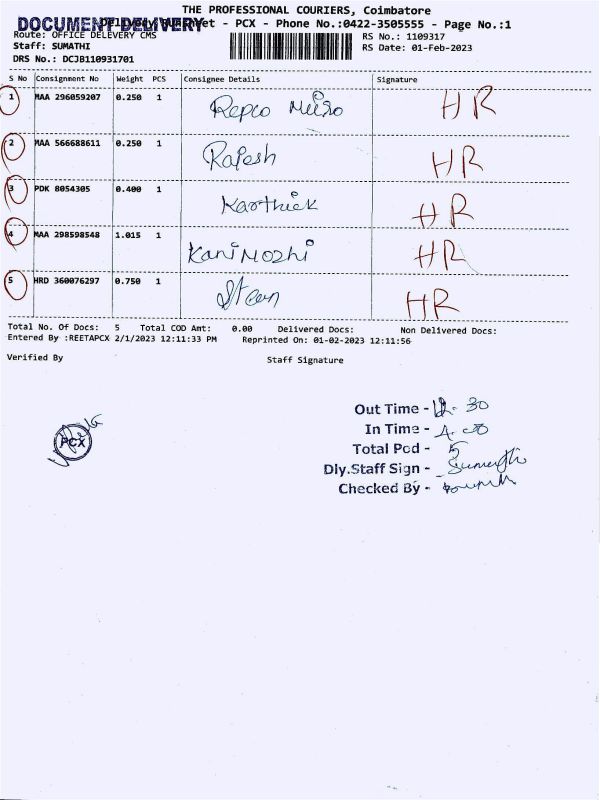 THE PROFESSIONAL COURIERS, Coimbatore
DOCUMENT DELIVERY
- PCX - Phone No.:0422-3505555 - Page No.:1
Route: OFFICE DELEVERY CMS
RS No.: 1109317
Staff: SUMATHI
RS Date: 01-Feb-2023
DRS No.: DCJB110931701
S No Consignment No Weight PCS Consignee Details Signature
1 MAA 296059207 0.250 1 Repco Micro HR
2 MAA 566688611 0.250 1 Rajesh HR
3 PDK 8054305 0.400 1 Karthick HR
4 MAA 298598548 1.015 1 Kanimozhi HR
5 HRD 360076297 0.750 1 HR
Total No. Of Docs: 5 Total COD Amt: 0.00 Delivered Docs: Non Delivered Docs:
Entered By :REETAPCX 2/1/2023 12:11:33 PM Reprinted On: 01-02-2023 12:11:56
Verified By Staff Signature
Out Time - 12.30
In Time - 4.00
PCX
Total Pod - 5
Dly.Staff Sign - Sumathi
Checked By -